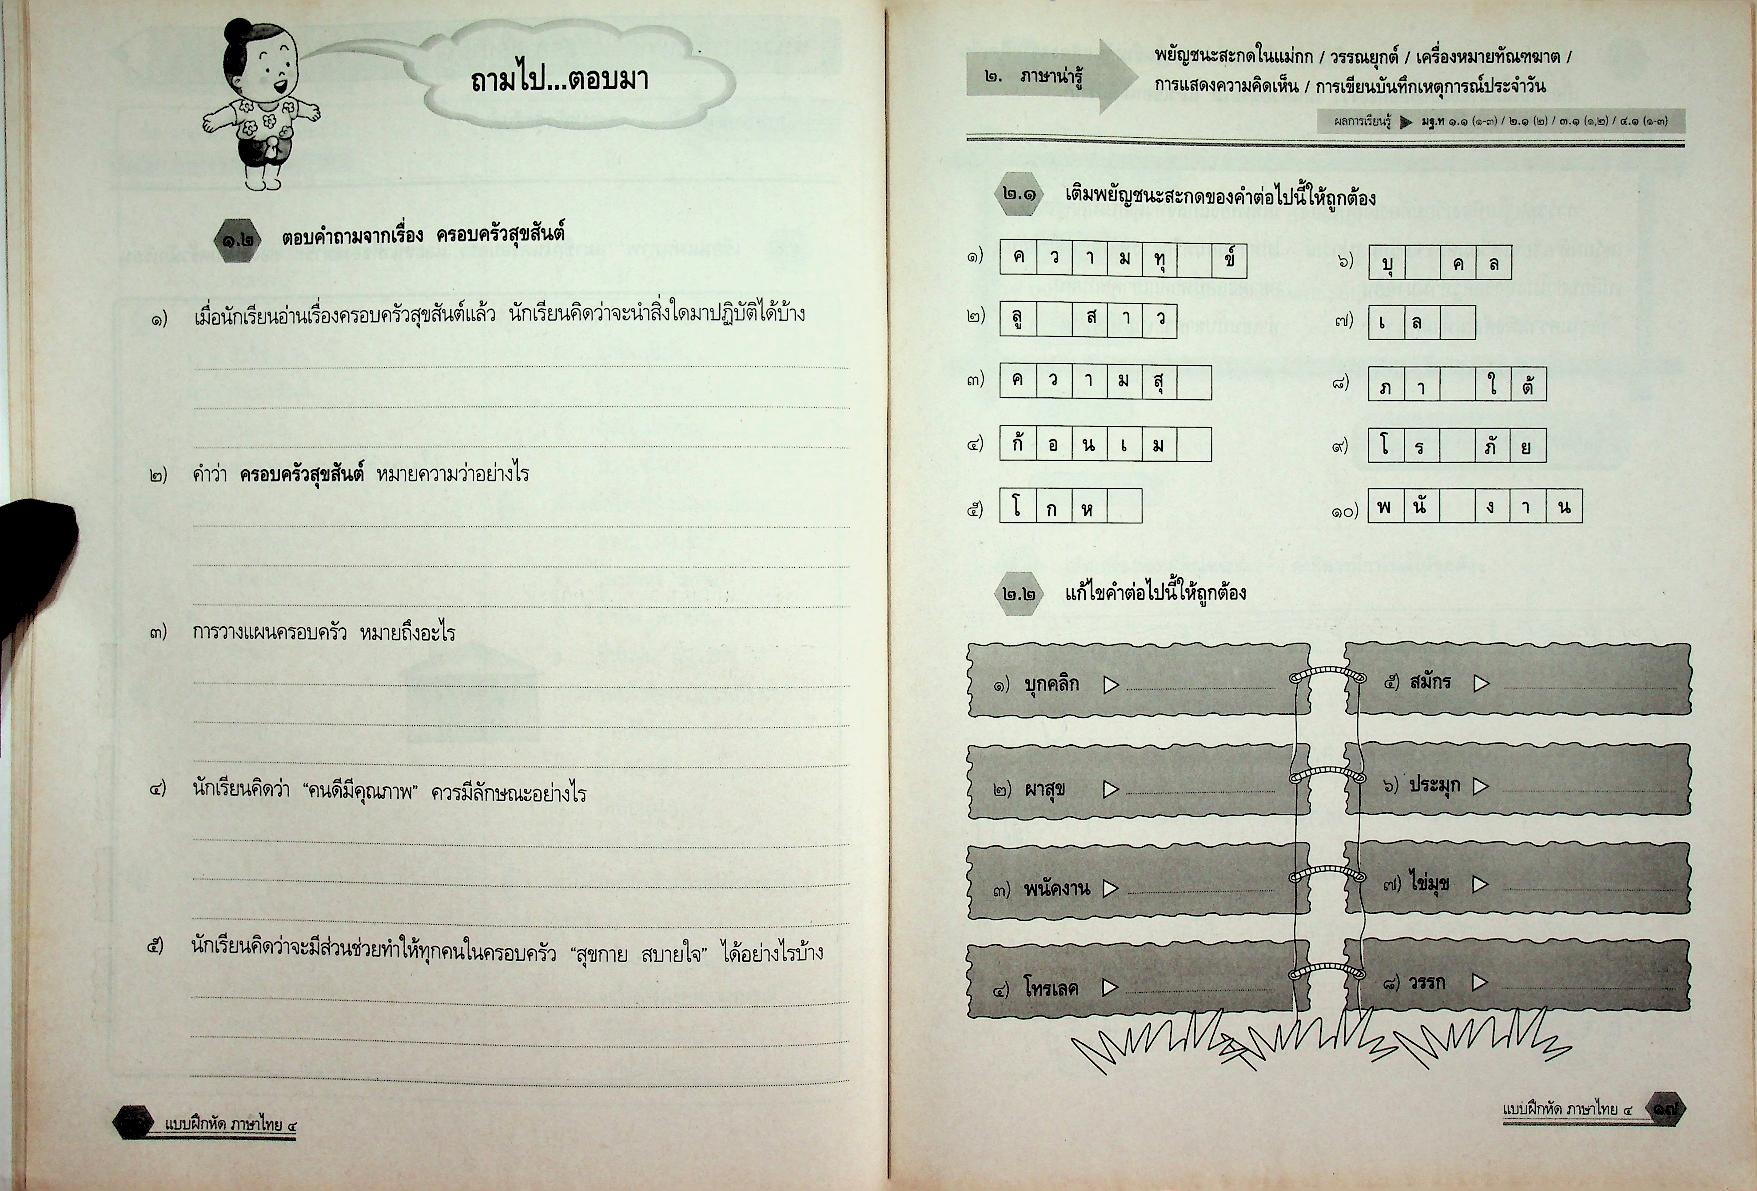 ถามไป...ตอบมา
๑.๒ ตอบคำถามจากเรื่อง ครอบครัวสุขสันต์
๑) เมื่อนักเรียนอ่านเรื่องครอบครัวสุขสันต์แล้ว นักเรียนคิดว่าจะนำสิ่งใดมาปฏิบัติได้บ้าง
๒) คำว่า ครอบครัวสุขสันต์ หมายความว่าอย่างไร
๓) การวางแผนครอบครัว หมายถึงอะไร
๔) นักเรียนคิดว่า “คนดีมีคุณภาพ” ควรมีลักษณะอย่างไร
๕) นักเรียนคิดว่าจะมีส่วนช่วยทำให้ทุกคนในครอบครัว “สุขกาย สบายใจ” ได้อย่างไรบ้าง
แบบฝึกหัด ภาษาไทย ๔
๒. ภาษาน่ารู้
พยัญชนะสะกดในแม่กก / วรรณยุกต์ / เครื่องหมายทัณฑฆาต /
การแสดงความคิดเห็น / การเขียนบันทึกเหตุการณ์ประจำวัน
ผลการเรียนรู้ ▶ มฐ.ท ๑.๑ (๑-๓) / ๒.๑ (๒) / ๓.๑ (๑,๒) / ๔.๑ (๑-๓)
๒.๑ เติมพยัญชนะสะกดของคำต่อไปนี้ให้ถูกต้อง
๑) ค ว า ม ทุ ข์
๒) ลู ส า ว
๓) ค ว า ม สุ
๔) ก้ อ น เ ม
๕) โ ก ห
๖) บุ ค ล
๗) เ ล
๘) ภ า ใ ต้
๙) โ ร ภั ย
๑๐) พ นั ง า น
๒.๒ แก้ไขคำต่อไปนี้ให้ถูกต้อง
๑) บุกคลิก
๒) ผาสุข
๓) พนัคงาน
๔) โทรเลค
๕) สมักร
๖) ประมุก
๗) ไข่มุข
๘) วรรก
แบบฝึกหัด ภาษาไทย ๔ ๑๗